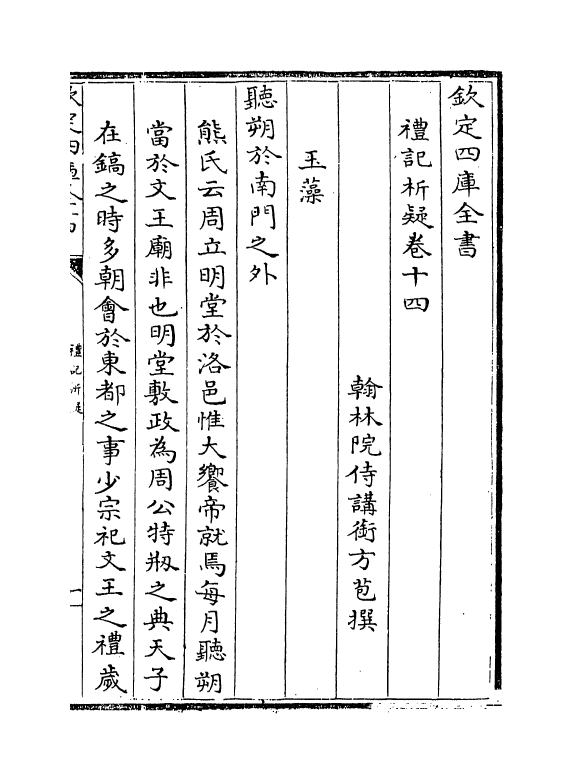 欽定四庫全書
禮記析疑卷十四
翰林院侍講銜方苞撰
玉藻
聽朔於南門之外
熊氏云周立明堂於洛邑惟大饗帝就焉每月聽朔
當於文王廟非也明堂敷政為周公特剏之典天子
在鎬之時多朝會於東都之事少宗祀文王之禮歲
禮記析疑